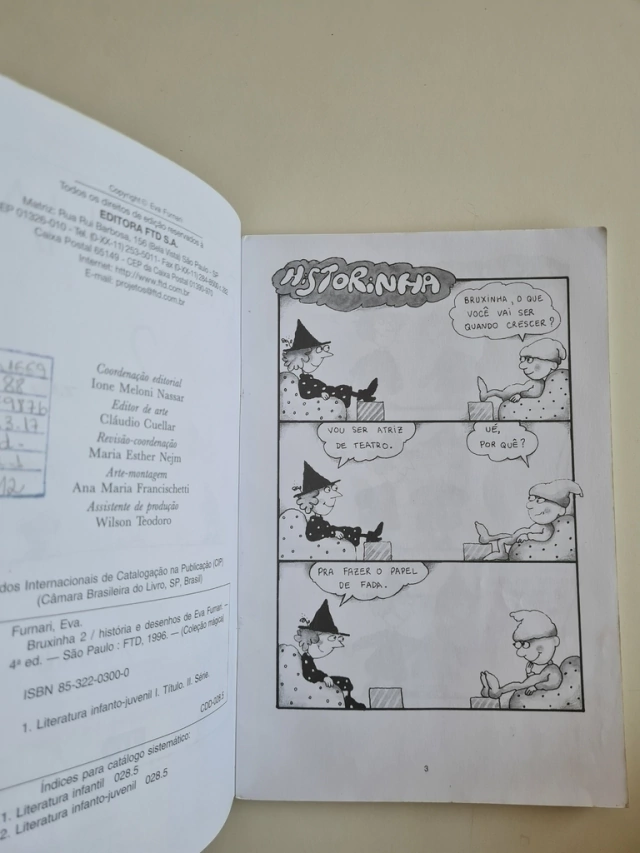 Copyright© Eva Furnari
Todos os direitos de edição reservados à
EDITORA FTD S.A.
Matriz: Rua Rui Barbosa, 156 (Bela Vista) São Paulo - SP
CEP 01326-010 - Tel. (0-XX-11) 253-5011 - Fax (0-XX-11)
Caixa Postal 65149 - CEP da Caixa Postal 01390-970
Internet: http://www.ftd.com.br
E-mail: projetos@ftd.com.br
Coordenação editorial
Ione Meloni Nassar
Editor de arte
Cláudio Cuellar
Revisão-coordenação
Maria Esther Nejm
Arte-montagem
Ana Maria Francischetti
Assistente de produção
Wilson Teodoro
dos Internacionais de Catalogação na Publicação (CIP)
(Câmara Brasileira do Livro, SP, Brasil)
Furnari, Eva.
Bruxinha 2 / história e desenhos de Eva Furnari. —
4ª ed. — São Paulo : FTD, 1996. — (Coleção mágica)
ISBN 85-322-0300-0
1. Literatura infanto-juvenil I. Título. II. Série.
CDD-028.5
Índices para catálogo sistemático:
1. Literatura infantil 028.5
2. Literatura infanto-juvenil 028.5
HISTORINHA
BRUXINHA, O QUE
VOCÊ VAI SER
QUANDO CRESCER?
VOU SER ATRIZ
DE TEATRO.
UÉ,
POR QUÊ?
PRA FAZER O PAPEL
DE FADA.
3